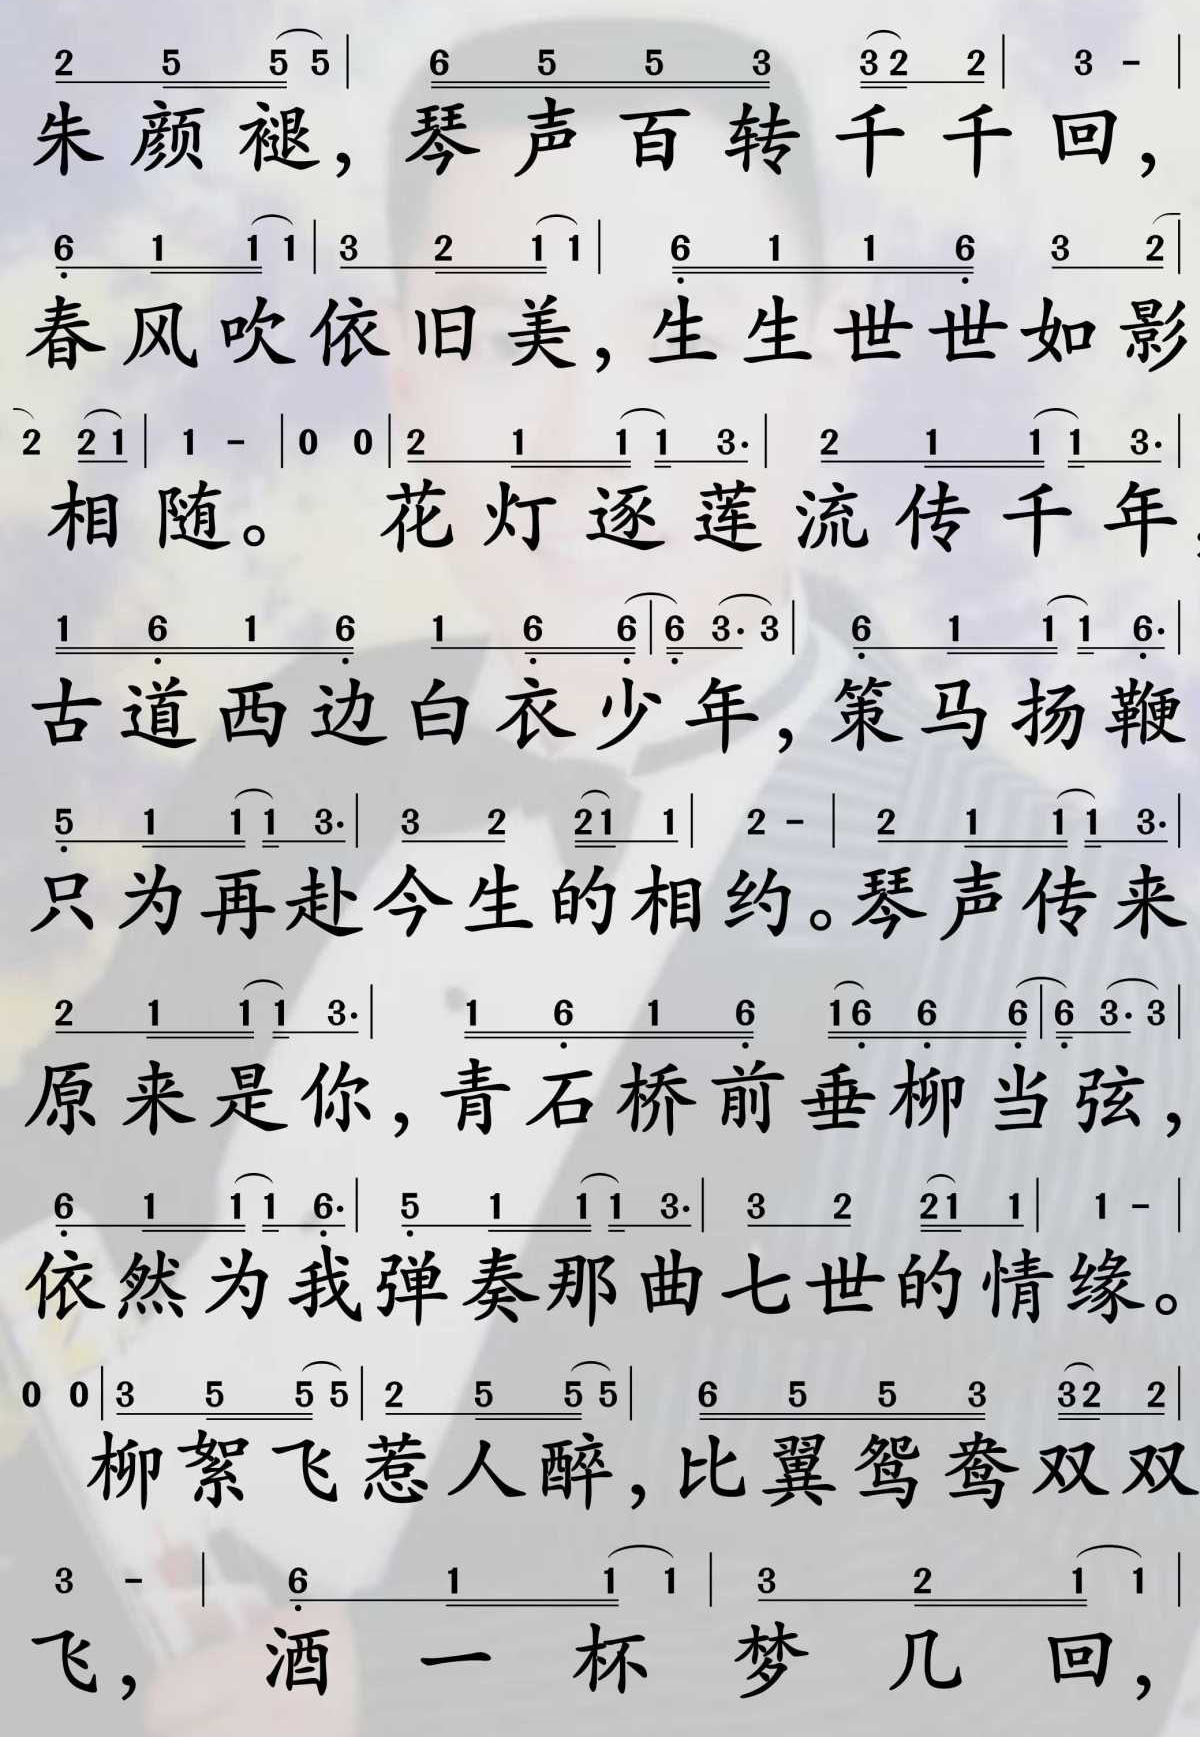 2 5 5 5 | 6 5 5 3 3 2 2 | 3 - |
朱颜褪，琴声百转千千回，
6 1 1 1 | 3 2 1 1 | 6 1 1 6 3 2 |
春风吹依旧美，生生世世如影
2 2 1 | 1 - | 0 0 | 2 1 1 1 3· | 2 1 1 1 3· |
相随。 花灯逐莲流传千年，
1 6 1 6 1 6 6 | 6 3· 3 | 6 1 1 1 6· |
古道西边白衣少年，策马扬鞭
5 1 1 1 3· | 3 2 2 1 1 | 2 - | 2 1 1 1 3· |
只为再赴今生的相约。琴声传来
2 1 1 1 3· | 1 6 1 6 1 6 6 6 | 6 3· 3 |
原来是你，青石桥前垂柳当弦，
6 1 1 1 6· | 5 1 1 1 3· | 3 2 2 1 1 | 1 - |
依然为我弹奏那曲七世的情缘。
0 0 | 3 5 5 5 | 2 5 5 5 | 6 5 5 3 3 2 2 |
柳絮飞惹人醉，比翼鸳鸯双双
3 - | 6 1 1 1 | 3 2 1 1 |
飞，酒一杯梦几回，